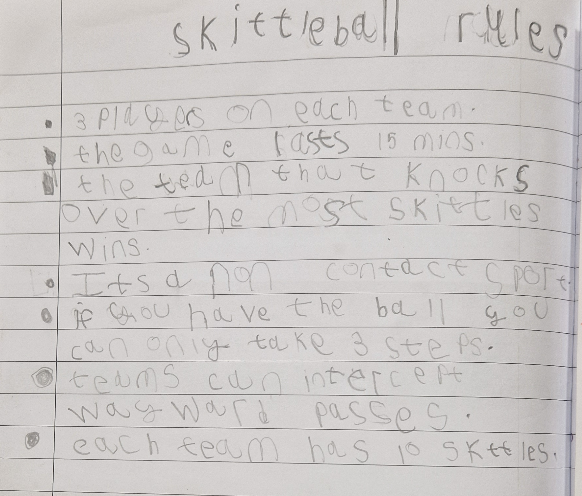 skittleball rules
• 3 players on each team.
• the game lasts 15 mins.
• the team that knocks
over the most skittles
wins.
• Its a non contact sport.
• if you have the ball you
can only take 3 steps.
• teams can intercept
wayward passes.
• each team has 10 skttles.